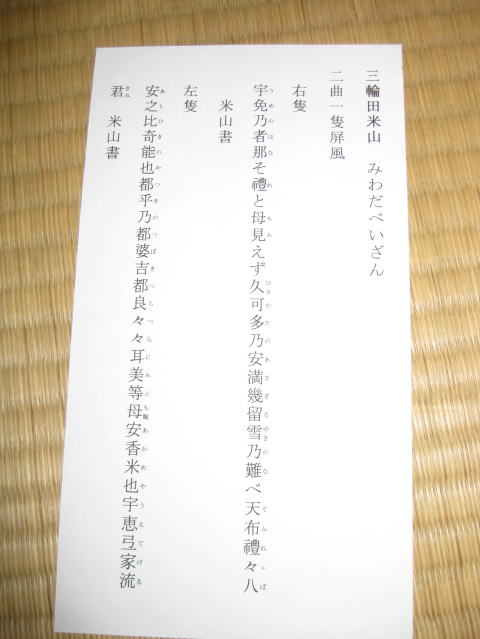 三輪田米山　みわだべいざん
二曲一隻屏風
右隻
宇免乃者那そ禮と母見えず久可多乃安満幾留雪乃難べ天布禮々八
米山書
左隻
安之比奇能也都乎乃都婆吉都良々々耳美等母安香米也宇恵弖家流
君　米山書